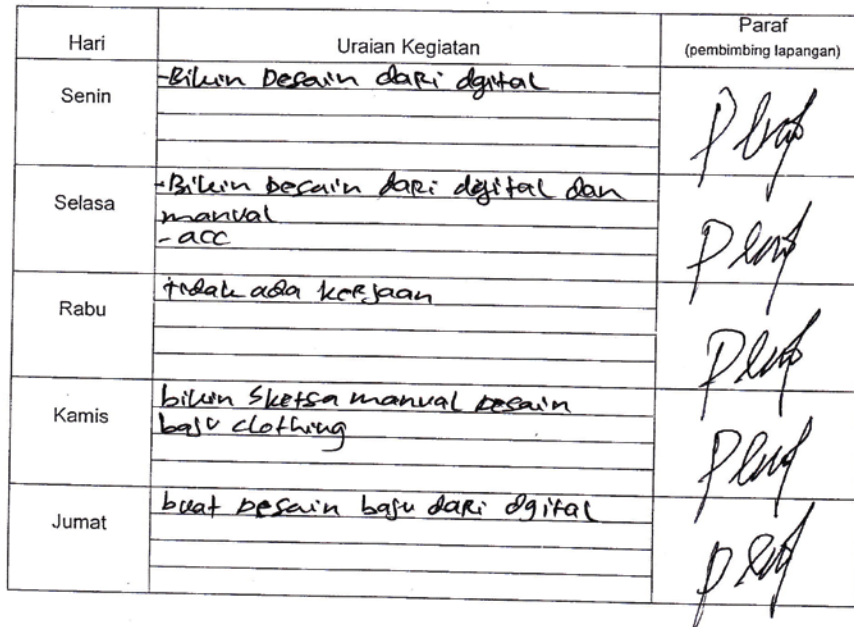 Hari Uraian Kegiatan Paraf
(pembimbing lapangan)
Senin -Bikin Desain dari dgital
Selasa -Bikin Desain dari digital dan
manual
- acc
Rabu tidak ada kerjaan
Kamis bikin Sketsa manual Desain
baju clothing
Jumat buat Desain baju dari dgital